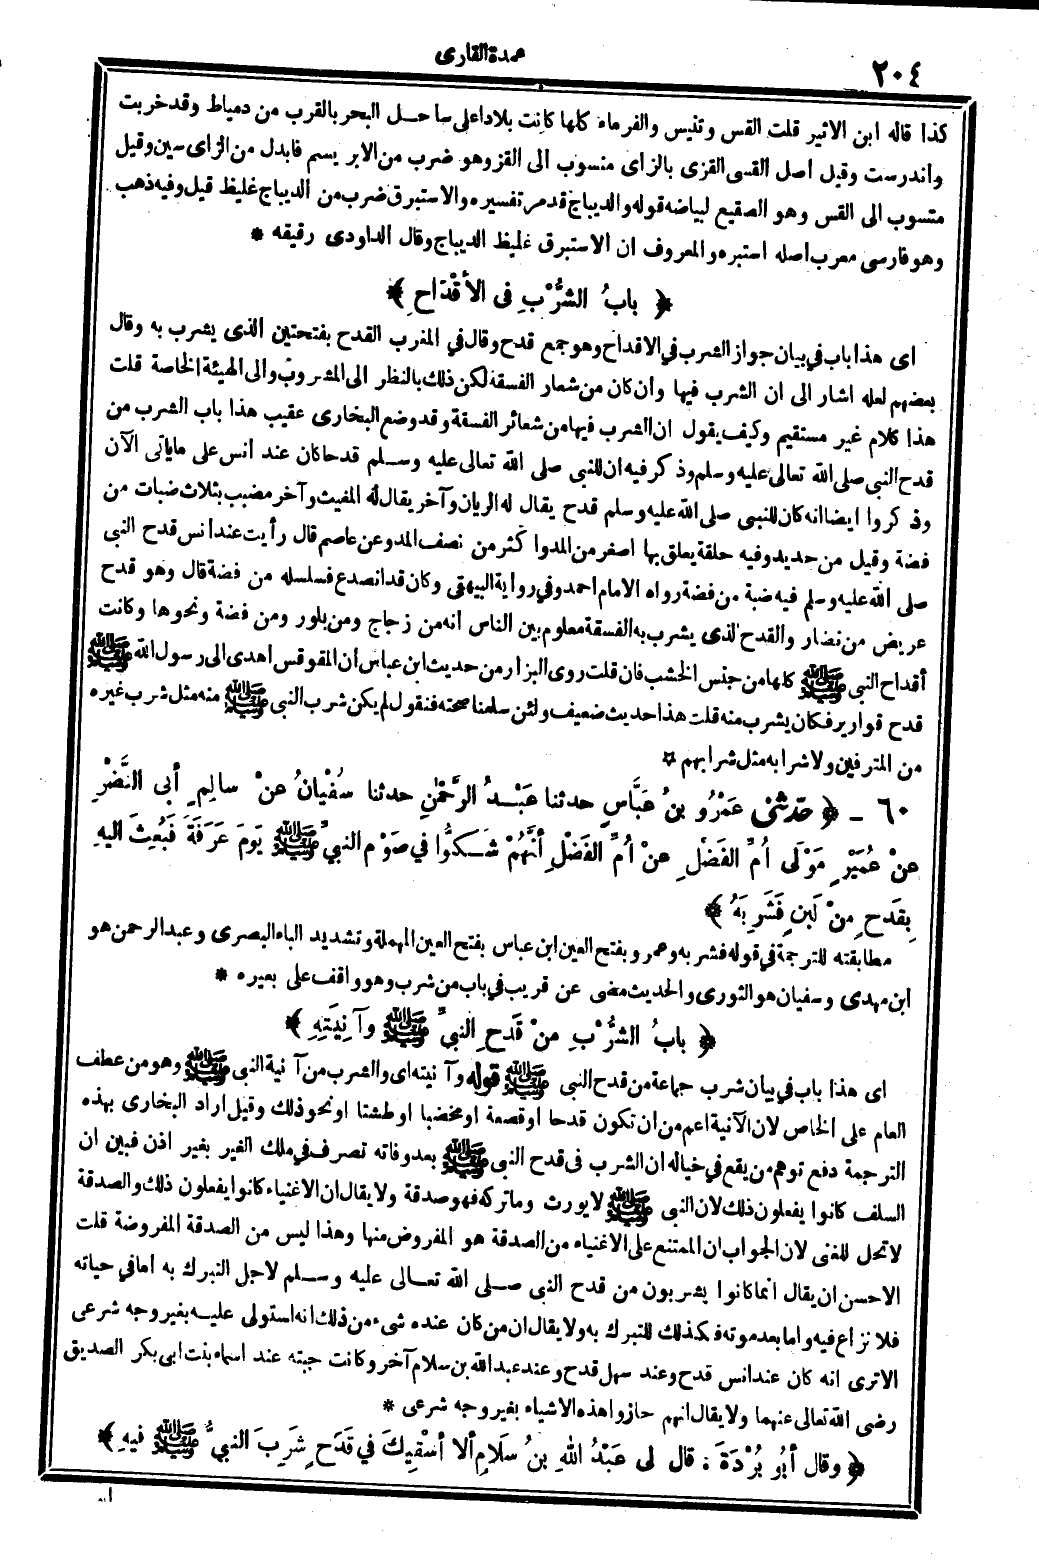 عمدة القارى
٢٠٤
كذا قاله ابن الاثير قلت القس وتنيس والفرماء كلها كانت بلادا على ساحل البحر بالقرب من دمياط وقد خربت
واندرست وقيل اصل القسى القزى بالزاى منسوب الى القز وهو ضرب من الابريسم فابدل من الزاى سين وقيل
متسوب الى القس وهو الصقيع لبياضه قوله والديباج قد مر تفسيره والاستبرق ضرب من الديباج غليظ قيل وفيه ذهب
وهو فارسى معرب اصله استبره والمعروف ان الاستبرق غليظ الديباج وقال الداودى رقيقه *
﴿ بابُ الشُّرْبِ فِى الأقْدَاحِ ﴾
اى هذا باب في بيان جواز الشرب في الاقداح وهو جمع قدح وقال في المغرب القدح بفتحتين الذى يشرب به وقال
بعضهم لعله اشار الى ان الشرب فيها وان كان من شعار الفسقة لكن ذلك بالنظر الى المشروب والى الهيئة الخاصة قلت
هذا كلام غير مستقيم وكيف يقول ان الشرب فيها من شعائر الفسقة وقد وضع البخارى عقيب هذا باب الشرب من
قدح النبى صلى الله تعالى عليه وسلم وذكر فيه ان للنبى صلى الله تعالى عليه وسلم قدحا كان عند انس على ما ياتى الآن
وذكروا ايضا انه كان للنبى صلى الله عليه وسلم قدح يقال له الريان وآخر يقال له المغيث وآخر مضبب بثلاث ضبات من
فضة وقيل من حديد وفيه حلقة يعلق بها اصغر من المد واكثر من نصف المد وعن عاصم قال رأيت عند انس قدح النبى
صلى الله عليه وسلم فيه ضبة من فضة رواه الامام احمد وفي رواية البيهقى وكان قد انصدع فسلسله من فضة قال وهو قدح
عريض من نضار والقدح الذى يشرب به الفسقة معلوم بين الناس انه من زجاج ومن بلور ومن فضة ونحوها وكانت
أقداح النبى ﷺ كلها من جنس الخشب فان قلت روى البزار من حديث ابن عباس ان المقوقس اهدى الى رسول الله ﷺ
قدح قوارير فكان يشرب منه قلت هذا حديث ضعيف ولئن سلمنا صحته فنقول لم يكن شرب النبى ﷺ منه مثل شرب غيره
من المترفين ولا شرابه مثل شرابهم *
٦٠ ـ ﴿ حَدّثَنِى عَمْرُو بنُ عَبَّاسٍ حدثنا عَبْدُ الرَّحْمٰنِ حدثنا سُفْيانُ عنْ سالِمٍ أبى النَّضْرِ
عنْ عُمَيْرٍ مَوْلَى أُمِّ الفَضْلِ عنْ أُمِّ الفَضْلِ أنَّهُمْ شَكُّوا في صَوْمِ النبىِّ ﷺ يَوْمَ عَرَفَةَ فَبُعِثَ اليهِ
بِقَدَحٍ مِنْ لَبَنٍ فَشَرِبَهُ ﴾
مطابقته للترجمة في قوله فشربه وعمرو بفتح العين ابن عباس بفتح العين المهملة وتشديد الباء البصرى وعبد الرحمن هو
ابن مهدى وسفيان هو الثورى والحديث مضى عن قريب في باب من شرب وهو واقف على بعيره *
﴿ بابُ الشُّرْبِ مِنْ قَدَحِ النبىِّ ﷺ وآنِيَتِهِ ﴾
اى هذا باب في بيان شرب جماعة من قدح النبى ﷺ قوله وآنيته اى والشرب من آنية النبى ﷺ وهو من عطف
العام على الخاص لان الآنية اعم من ان تكون قدحا او قصعة او مخضبا او طشتا او نحو ذلك وقيل اراد البخارى بهذه
الترجمة دفع توهم من يقع في خياله ان الشرب فى قدح النبى ﷺ بعد وفاته تصرف في ملك الغير بغير اذن فبين ان
السلف كانوا يفعلون ذلك لان النبى ﷺ لا يورث وما تركه فهو صدقة ولا يقال ان الاغنياء كانوا يفعلون ذلك والصدقة
لا تحل للغنى لان الجواب ان الممتنع على الاغنياء من الصدقة هو المفروض منها وهذا ليس من الصدقة المفروضة قلت
الاحسن ان يقال انما كانوا يشربون من قدح النبى صلى الله تعالى عليه وسلم لاجل التبرك به اما في حياته
فلا نزاع فيه واما بعد موته فكذلك للتبرك به ولا يقال ان من كان عنده شىء من ذلك انه استولى عليه بغير وجه شرعى
الاترى انه كان عند انس قدح وعند سهل قدح وعند عبد الله بن سلام آخر وكانت جبته عند اسماء بنت ابى بكر الصديق
رضى الله تعالى عنهما ولا يقال انهم حازوا هذه الاشياء بغير وجه شرعى *
﴿ وقال أبُو بُرْدَةَ : قال لى عَبْدُ اللهِ بنُ سَلَامٍ ألا أسْقِيكَ في قَدَحٍ شَرِبَ النبىُّ ﷺ فيهِ ﴾